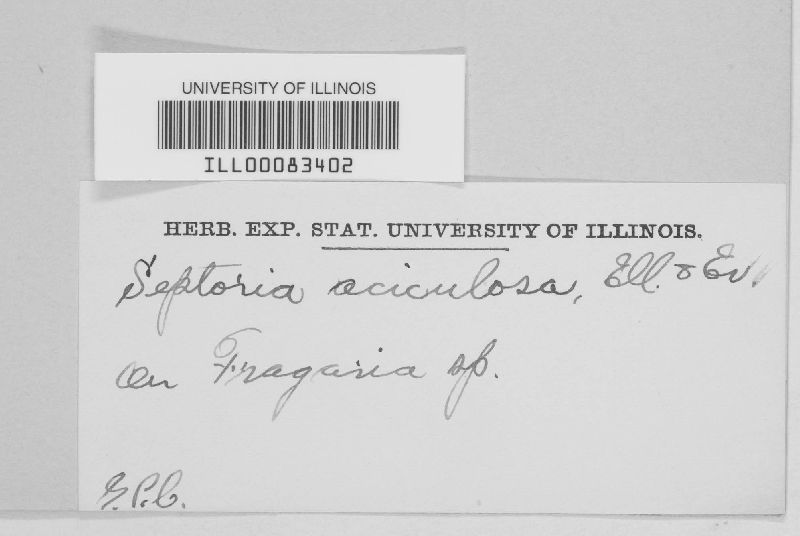 UNIVERSITY OF ILLINOIS
ILL00083402
HERB. EXP. STAT. UNIVERSITY OF ILLINOIS.
Septoria aciculosa, Ell. & Ev.
On Fragaria sp.
G.P.C.